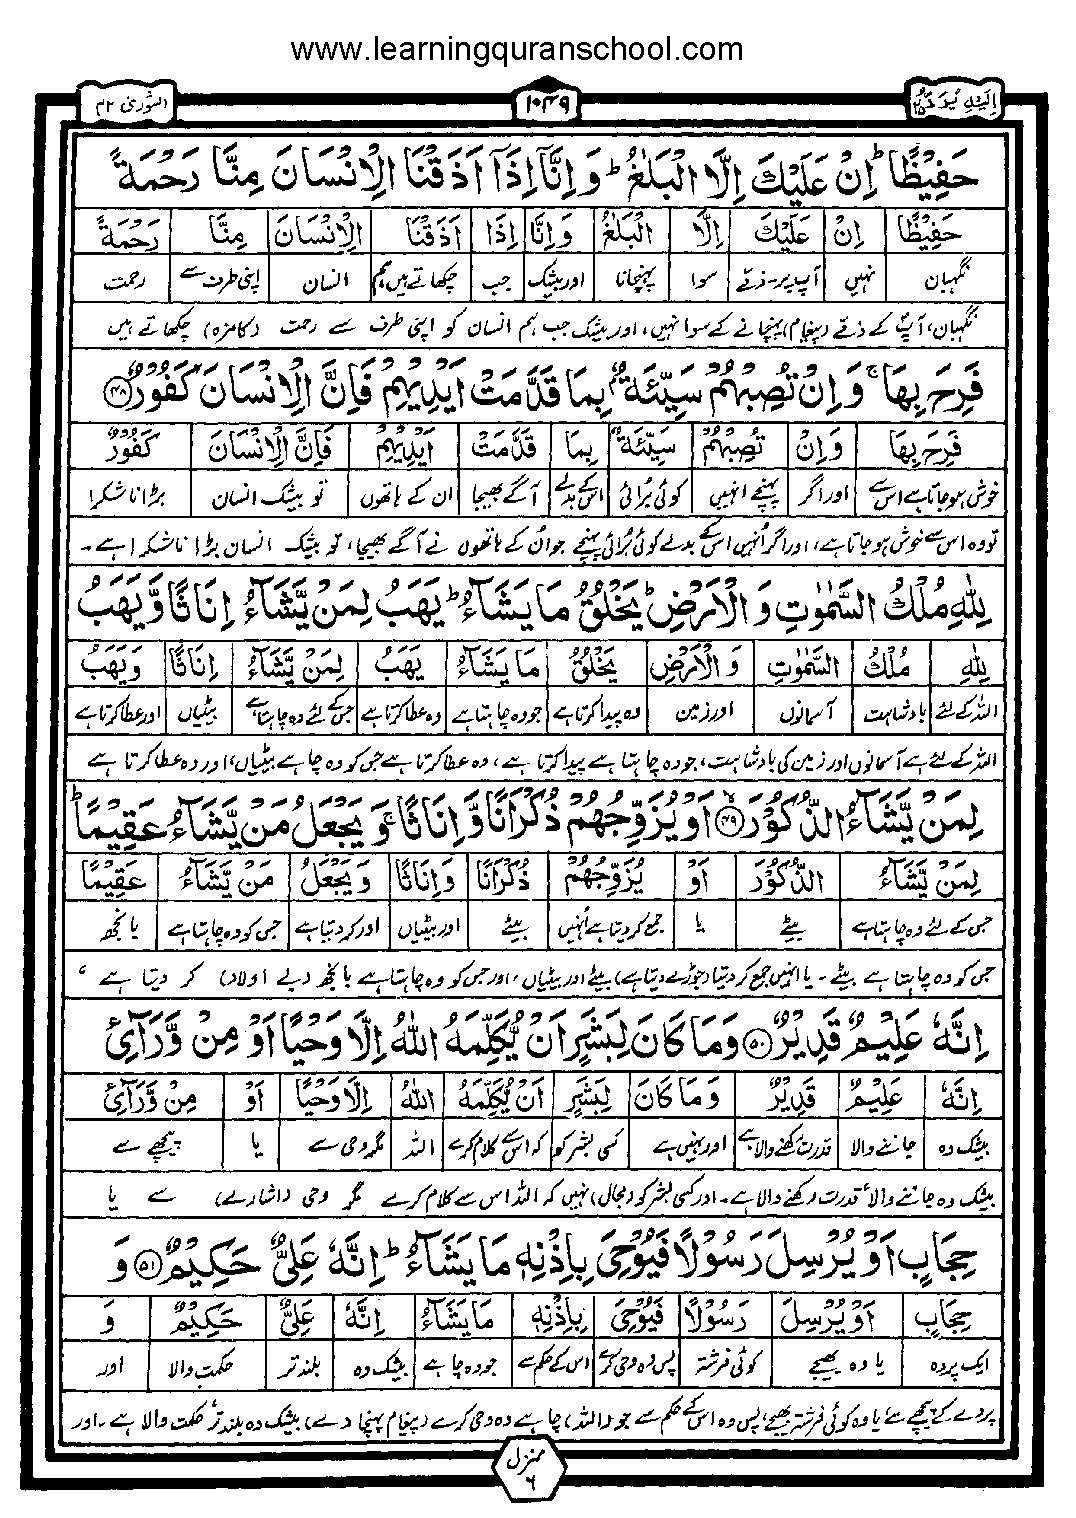 www.learningquranschool.com
اِلَيْهِ يُرَدُّ ۲۵
۱۰۴۹
الشورٰی ۴۲
حَفِيْظًا ؕ اِنْ عَلَيْكَ اِلَّا الْبَلٰغُ ؕ وَ اِنَّاۤ اِذَاۤ اَذَقْنَا الْاِنْسَانَ مِنَّا رَحْمَةً
حَفِيْظًا اِنْ عَلَيْكَ اِلَّا الْبَلٰغُ وَ اِنَّا اِذَا اَذَقْنَا الْاِنْسَانَ مِنَّا رَحْمَةً
نگہبان نہیں آپ پر۔ذمّے سوا پہنچانا اور بیشک جب چکھاتے ہیں ہم انسان اپنی طرف سے رحمت
نگہبان، آپؐ کے ذمّے (پیغام) پہنچانے کے سوا نہیں، اور بیشک جب ہم انسان کو اپنی طرف سے رحمت (کا مزہ) چکھاتے ہیں
فَرِحَ بِهَا ۚ وَ اِنْ تُصِبْهُمْ سَيِّئَةٌۢ بِمَا قَدَّمَتْ اَيْدِيْهِمْ فَاِنَّ الْاِنْسَانَ كَفُوْرٌ ۴۸
فَرِحَ بِهَا وَ اِنْ تُصِبْهُمْ سَيِّئَةٌۢ بِمَا قَدَّمَتْ اَيْدِيْهِمْ فَاِنَّ الْاِنْسَانَ كَفُوْرٌ
خوش ہو جاتا ہے اس سے اور اگر پہنچے انہیں کوئی بُرائی اس کے بدلے آگے بھیجا ان کے ہاتھوں تو بیشک انسان بڑا ناشکرا
تو وہ اس سے خوش ہو جاتا ہے، اور اگر اُنہیں اس کے بدلے کوئی بُرائی پہنچے جو اُن کے ہاتھوں نے آگے بھیجا، تو بیشک انسان بڑا ناشکرا ہے۔
لِلّٰهِ مُلْكُ السَّمٰوٰتِ وَ الْاَرْضِ ؕ يَخْلُقُ مَا يَشَآءُ ؕ يَهَبُ لِمَنْ يَّشَآءُ اِنَاثًا وَّ يَهَبُ
لِلّٰهِ مُلْكُ السَّمٰوٰتِ وَ الْاَرْضِ يَخْلُقُ مَا يَشَآءُ يَهَبُ لِمَنْ يَّشَآءُ اِنَاثًا وَ يَهَبُ
اللہ کے لئے بادشاہت آسمانوں اور زمین وہ پیدا کرتا ہے جو وہ چاہتا ہے وہ عطا کرتا ہے جس کے لئے وہ چاہتا ہے بیٹیاں اور عطا کرتا ہے
اللہ کے لئے ہے آسمانوں اور زمین کی بادشاہت، جو وہ چاہتا ہے پیدا کرتا ہے، وہ عطا کرتا ہے جس کو وہ چاہے بیٹیاں، اور وہ عطا کرتا ہے
لِمَنْ يَّشَآءُ الذُّكُوْرَ ۴۹ اَوْ يُزَوِّجُهُمْ ذُكْرَانًا وَّ اِنَاثًا ۚ وَ يَجْعَلُ مَنْ يَّشَآءُ عَقِيْمًا ؕ
لِمَنْ يَّشَآءُ الذُّكُوْرَ اَوْ يُزَوِّجُهُمْ ذُكْرَانًا وَ اِنَاثًا وَ يَجْعَلُ مَنْ يَّشَآءُ عَقِيْمًا
جس کے لئے وہ چاہتا ہے بیٹے یا جمع کر دیتا ہے اُنہیں بیٹے اور بیٹیاں اور کر دیتا ہے جس کو وہ چاہتا ہے بانجھ
جس کو وہ چاہتا ہے بیٹے۔ یا انہیں جمع کر دیتا (جوڑے دیتا ہے) بیٹے اور بیٹیاں، اور جس کو وہ چاہتا ہے بانجھ (بے اولاد) کر دیتا ہے،
اِنَّهٗ عَلِيْمٌ قَدِيْرٌ ۵۰ وَ مَا كَانَ لِبَشَرٍ اَنْ يُّكَلِّمَهُ اللّٰهُ اِلَّا وَحْيًا اَوْ مِنْ وَّرَآئِ
اِنَّهٗ عَلِيْمٌ قَدِيْرٌ وَ مَا كَانَ لِبَشَرٍ اَنْ يُّكَلِّمَهُ اللّٰهُ اِلَّا وَحْيًا اَوْ مِنْ وَّرَآئِ
بیشک وہ جاننے والا قدرت رکھنے والا ہے اور نہیں ہے کسی بشر کو کہ اس سے کلام کرے اللہ مگر وحی سے یا پیچھے سے
بیشک وہ جاننے والا قدرت رکھنے والا ہے۔ اور کسی بشر کو (مجال) نہیں کہ اللہ اس سے کلام کرے مگر وحی (اشارے) سے یا
حِجَابٍ اَوْ يُرْسِلَ رَسُوْلًا فَيُوْحِيَ بِاِذْنِهٖ مَا يَشَآءُ ؕ اِنَّهٗ عَلِيٌّ حَكِيْمٌ ۵۱ وَ
حِجَابٍ اَوْ يُرْسِلَ رَسُوْلًا فَيُوْحِيَ بِاِذْنِهٖ مَا يَشَآءُ اِنَّهٗ عَلِيٌّ حَكِيْمٌ وَ
ایک پردہ یا وہ بھیجے کوئی فرشتہ پس وہ وحی کرے اس کے حکم سے جو وہ چاہے بیشک وہ بلند تر حکمت والا اور
پردے کے پیچھے سے یا وہ کوئی فرشتہ بھیجے، پس وہ اس کے حکم سے جو (اللہ) چاہے وہ وحی کرے (پیغام پہنچا دے) بیشک وہ بلند تر، حکمت والا ہے۔ اور
منزل ۶